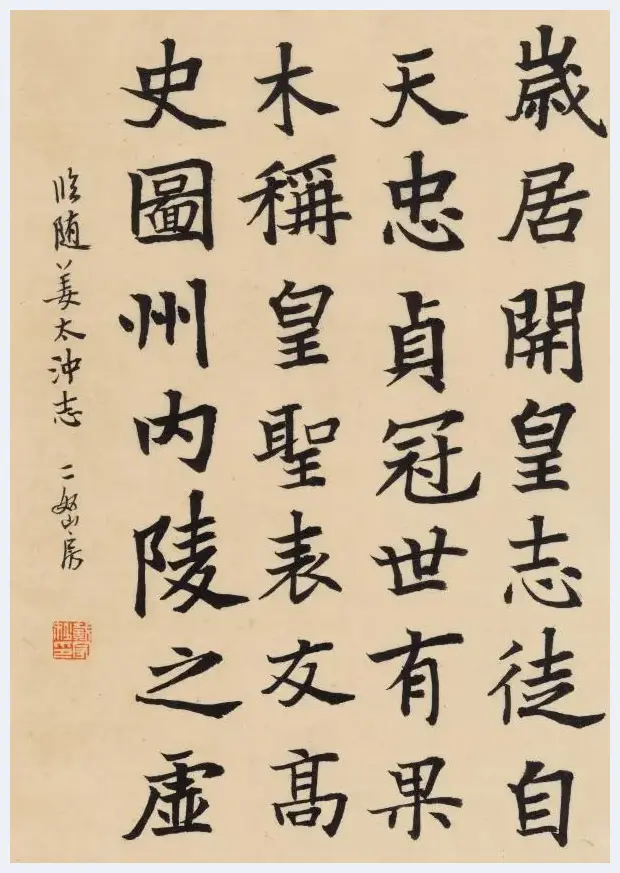 歲居開皇志徒自
天忠貞冠世有果
木稱皇聖表友高
史圖州内陵之虛
临随姜太沖志 二 房